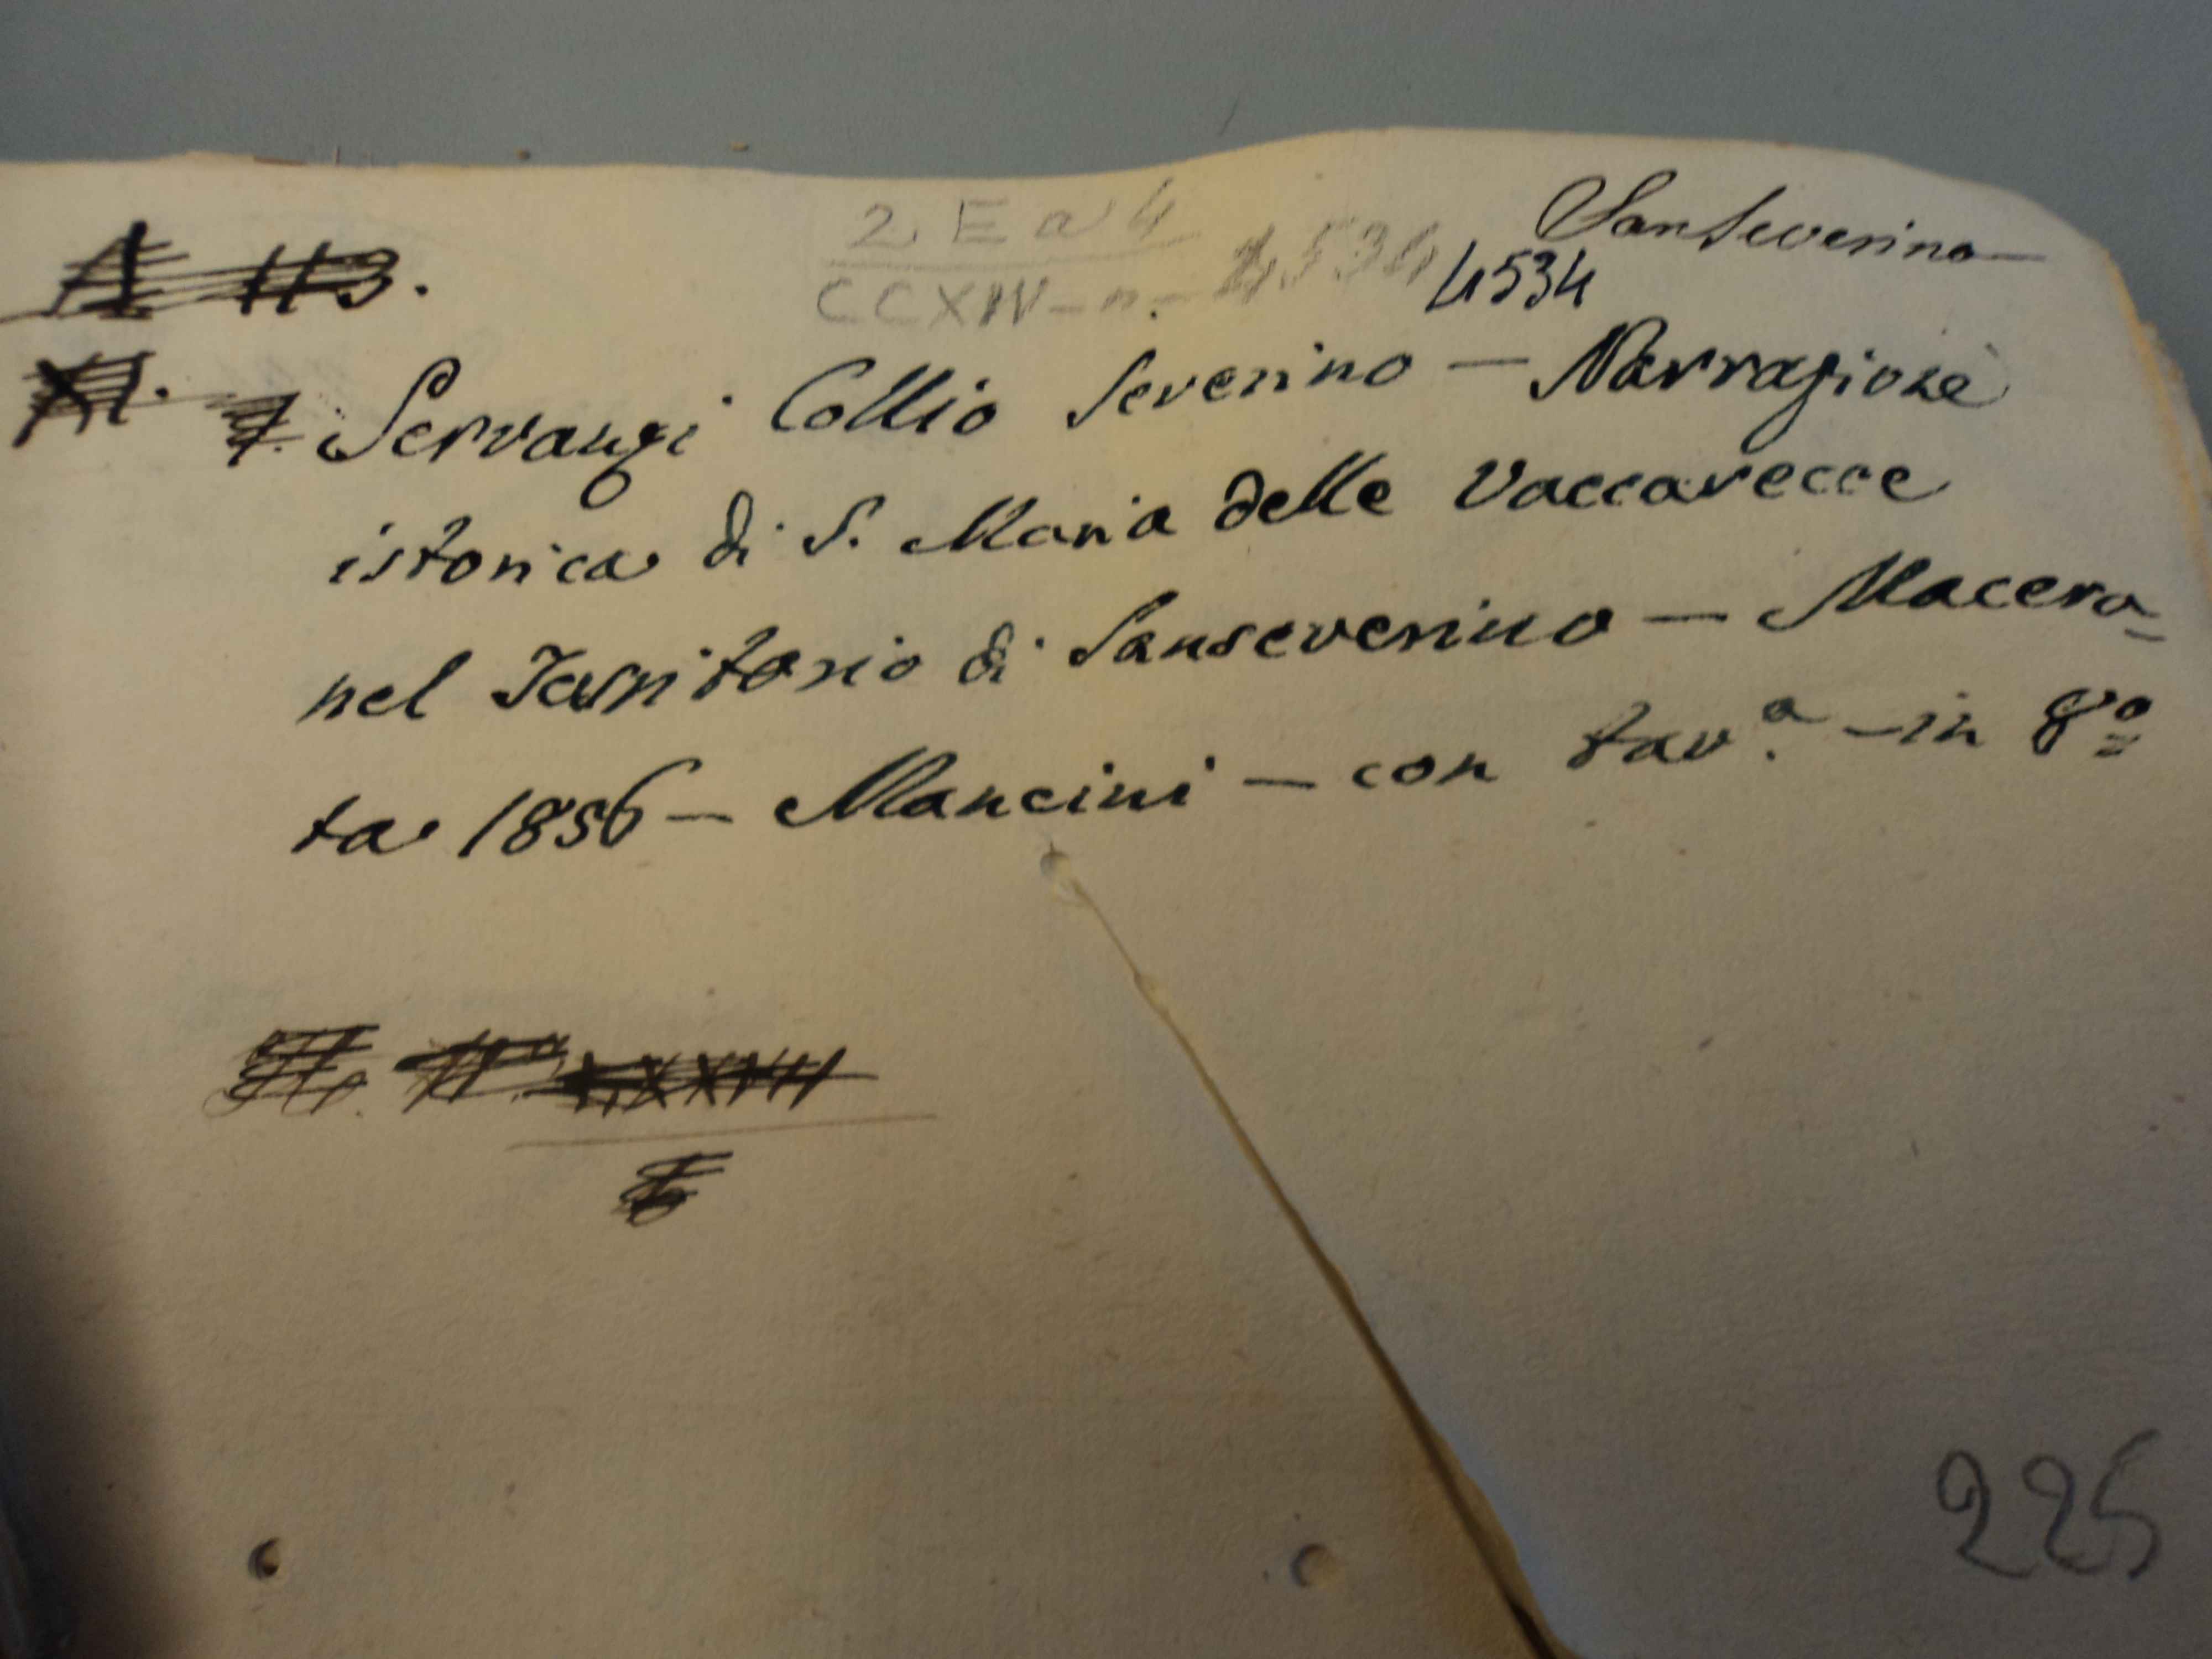 SanSeverino
2 E a 4
CCXIV - n. - 4534
4534
A 113.
XI. 7. Servanzi Collio Severino — Narrazione
istorica di S. Maria delle Vaccarecce
nel Territorio di Sanseverino — Macera-
ta 1856 — Mancini — con tav.ª - in 8º
225